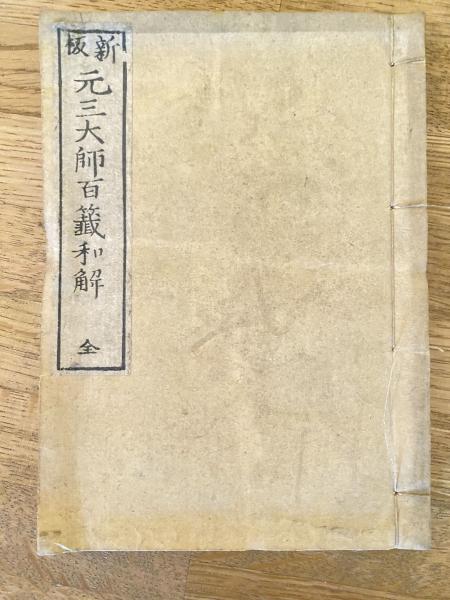 新板
元三大師百籤和解
全